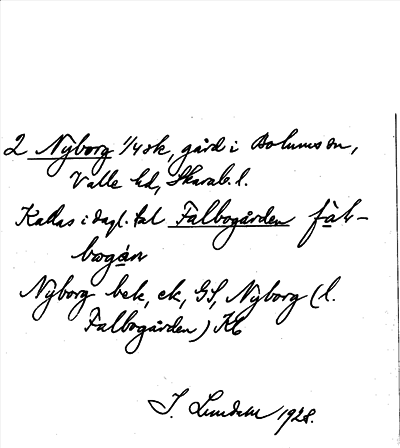 2 Nyborg 1/4 sk, gård i Bolums sn,
Valle hd, Skarab. l.
Kallas i dagl. tal Falbogården fàl-
bogán
Nyborg bek, ek, GS, Nyborg (l.
Falbogården) KE
I. Lundahl 1928.